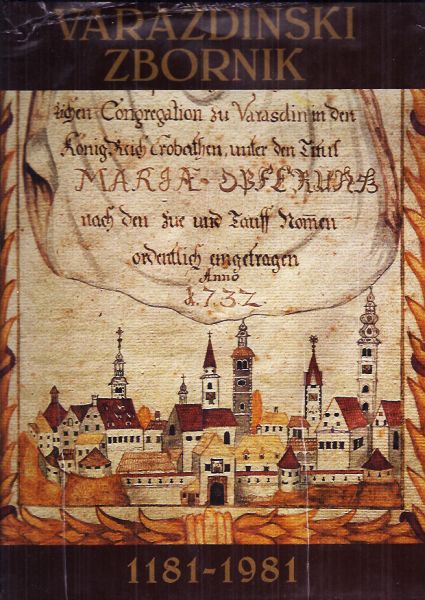 VARAŽDINSKI
ZBORNIK
lichen Congregation zu Varasdin in den
König Reich Crobathen, unter den Titul
MARIÆ OPFERUNG
nach den Zue und Tauff Nomen
ordentlich eingetragen
Anno
1.7.3.2
1181-1981